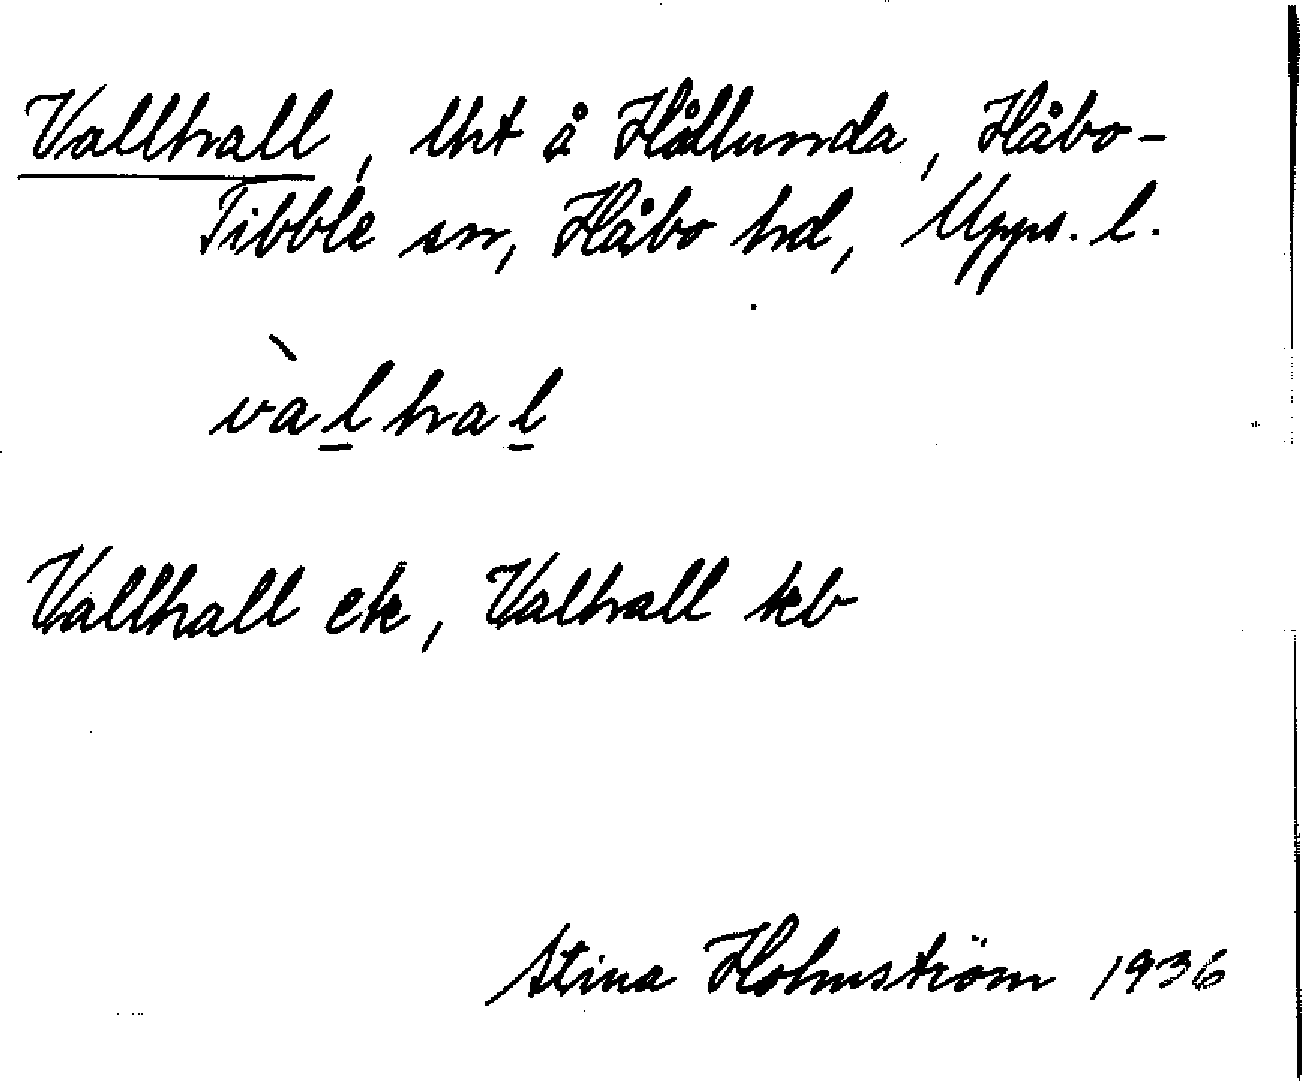 Vallhall, lht å Hållunda, Håbo-
Tibble sn, Håbo hd, Upps. l.
vàl̲hal̲
Vallhall ek, Valhall kb
Stina Holmström 1936